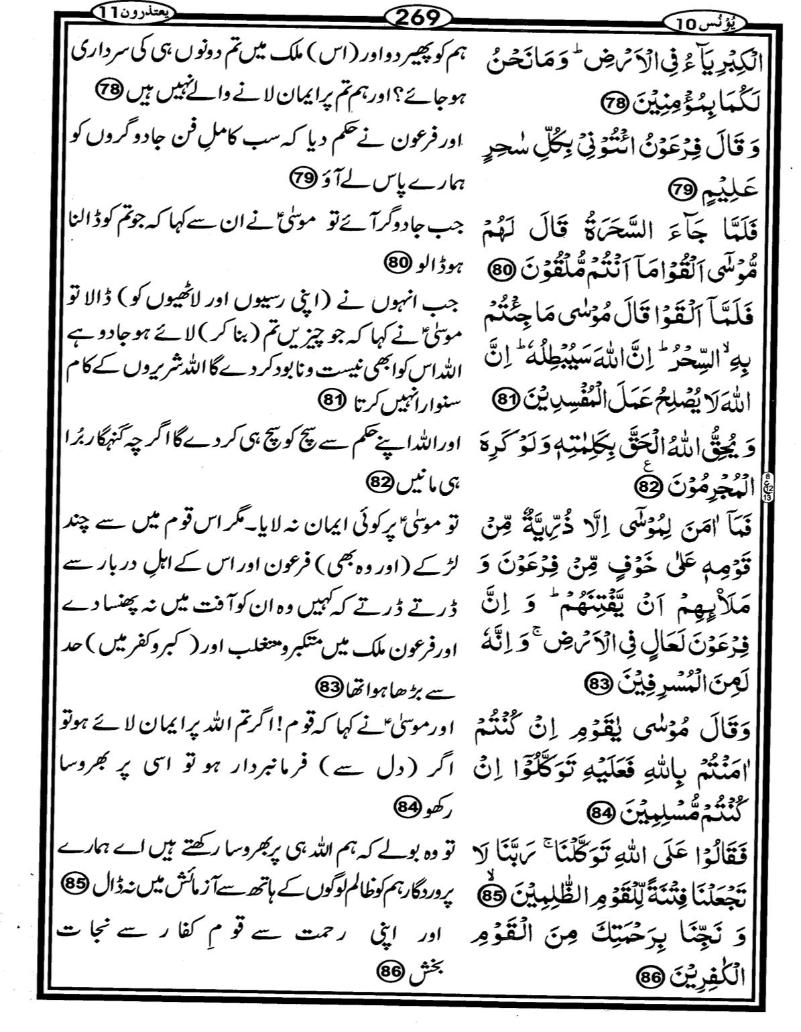 یُوْنُس 10
269
یعتذرون 11
الْکِبْرِیَآءُ فِی الْاَرْضِ ؕ وَ مَا نَحْنُ
لَکُمَا بِمُؤْمِنِیْنَ 78
وَ قَالَ فِرْعَوْنُ ائْتُوْنِیْ بِکُلِّ سٰحِرٍ
عَلِیْمٍ 79
فَلَمَّا جَآءَ السَّحَرَةُ قَالَ لَهُمْ
مُّوْسٰۤی اَلْقُوْا مَاۤ اَنْتُمْ مُّلْقُوْنَ 80
فَلَمَّاۤ اَلْقَوْا قَالَ مُوْسٰی مَا جِئْتُمْ
بِهِ ۙ السِّحْرُ ؕ اِنَّ اللهَ سَیُبْطِلُهٗ ؕ اِنَّ
اللهَ لَا یُصْلِحُ عَمَلَ الْمُفْسِدِیْنَ 81
وَ یُحِقُّ اللهُ الْحَقَّ بِکَلِمٰتِهٖ وَ لَوْ کَرِهَ
الْمُجْرِمُوْنَ ع 82
فَمَاۤ اٰمَنَ لِمُوْسٰۤی اِلَّا ذُرِّیَّةٌ مِّنْ
قَوْمِهٖ عَلٰی خَوْفٍ مِّنْ فِرْعَوْنَ وَ
مَلَاۡئِهِمْ اَنْ یَّفْتِنَهُمْ ؕ وَ اِنَّ
فِرْعَوْنَ لَعَالٍ فِی الْاَرْضِ ۚ وَ اِنَّهٗ
لَمِنَ الْمُسْرِفِیْنَ 83
وَقَالَ مُوْسٰی یٰقَوْمِ اِنْ کُنْتُمْ
اٰمَنْتُمْ بِاللهِ فَعَلَیْهِ تَوَکَّلُوْۤا اِنْ
کُنْتُمْ مُّسْلِمِیْنَ 84
فَقَالُوْا عَلَی اللهِ تَوَکَّلْنَا ۚ رَبَّنَا لَا
تَجْعَلْنَا فِتْنَةً لِّلْقَوْمِ الظّٰلِمِیْنَ ۙ 85
وَ نَجِّنَا بِرَحْمَتِكَ مِنَ الْقَوْمِ
الْکٰفِرِیْنَ 86
ہم کو پھیر دو اور (اس) ملک میں تم دونوں ہی کی سرداری
ہو جائے؟ اور ہم تم پر ایمان لانے والے نہیں ہیں 78
اور فرعون نے حکم دیا کہ سب کامل فن جادوگروں کو
ہمارے پاس لے آؤ 79
جب جادوگر آئے تو موسٰیؑ نے ان سے کہا کہ جو تم کو ڈالنا
ہو ڈالو 80
جب انہوں نے (اپنی رسیوں اور لاٹھیوں کو) ڈالا تو
موسٰیؑ نے کہا کہ جو چیزیں تم (بنا کر) لائے ہو جادو ہے
اللہ اس کو ابھی نیست و نابود کر دے گا اللہ شریروں کے کام
سنوارا نہیں کرتا 81
اور اللہ اپنے حکم سے سچ کو سچ ہی کر دے گا اگرچہ گنہگار بُرا
ہی مانیں 82
تو موسٰیؑ پر کوئی ایمان نہ لایا۔ مگر اس قوم میں سے چند
لڑکے (اور وہ بھی) فرعون اور اس کے اہلِ دربار سے
ڈرتے ڈرتے کہ کہیں وہ ان کو آفت میں نہ پھنسا دے
اور فرعون ملک میں متکبر و متغلب اور (کبر و کفر میں) حد
سے بڑھا ہوا تھا 83
اور موسٰیؑ نے کہا کہ قوم! اگر تم اللہ پر ایمان لائے ہو تو
اگر (دل سے) فرمانبردار ہو تو اسی پر بھروسا
رکھو 84
تو وہ بولے کہ ہم اللہ ہی پر بھروسا رکھتے ہیں اے ہمارے
پروردگار ہم کو ظالم لوگوں کے ہاتھ سے آزمائش میں نہ ڈال 85
اور اپنی رحمت سے قومِ کفار سے نجات
بخش 86